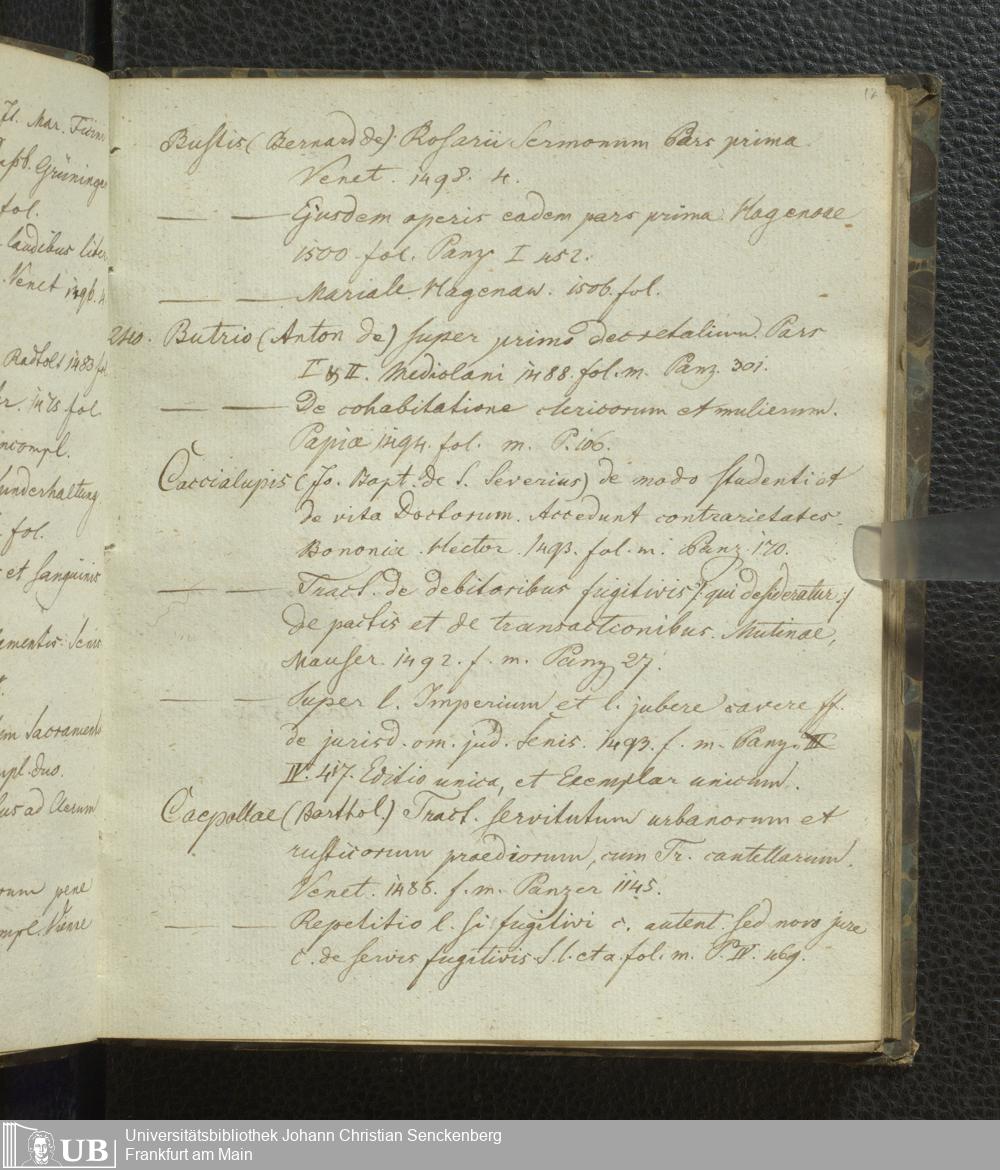 12
Bustis (Bernard de) Rosarii Sermonum Pars prima
Venet. 1498. 4.
— — Ejusdem operis eadem pars prima Hagenoae
1500. fol. Panz I 452.
— — Mariale. Hagenaw. 1506. fol.
240. Butrio (Anton de) super primo decretalium. Pars
I & II. Mediolani 1488. fol. m. Panz. 301.
— — De cohabitatione clericorum et mulierum.
Papiae 1494. fol. m. P. 106.
Caccialupis (Jo. Bapt. de S. Severius) de modo studenti et
de vita Doctorum. Accedunt contrarietates.
Bononia. Hector. 1493. fol. m. Panz. 170.
— — Tract. de debitoribus fugitivis /: qui desideratur :/
de pactis et de transactionibus. Mutinae,
Mauser. 1492. f. m. Panz 27.
— — Super l. Imperium et l. jubere cavere ff.
de jurisd. om. jud. Senis. 1493. f. m. Panz.
IV. 417. Editio unica, et Exemplar unicum.
Caepollae (Barthol.) Tract. servitutum urbanorum et
rusticorum praediorum, cum Tr. cautellarum.
Venet. 1485. f. m. Panzer 1145.
— — Repetitio l. si fugitivi c. autent. sed novo jure
c. de servis fugitivis S. l. et a. fol. m. P. IV. 469.
Mar.
Grüninger
fol.
laudibus
Venet 1496. 4
Radtolt 1483
1475. fol
incompl.
underhaltung
fol.
et sanguinis
Sacramento
duo.
ad Clerum
pene
UB
Universitätsbibliothek Johann Christian Senckenberg
Frankfurt am Main